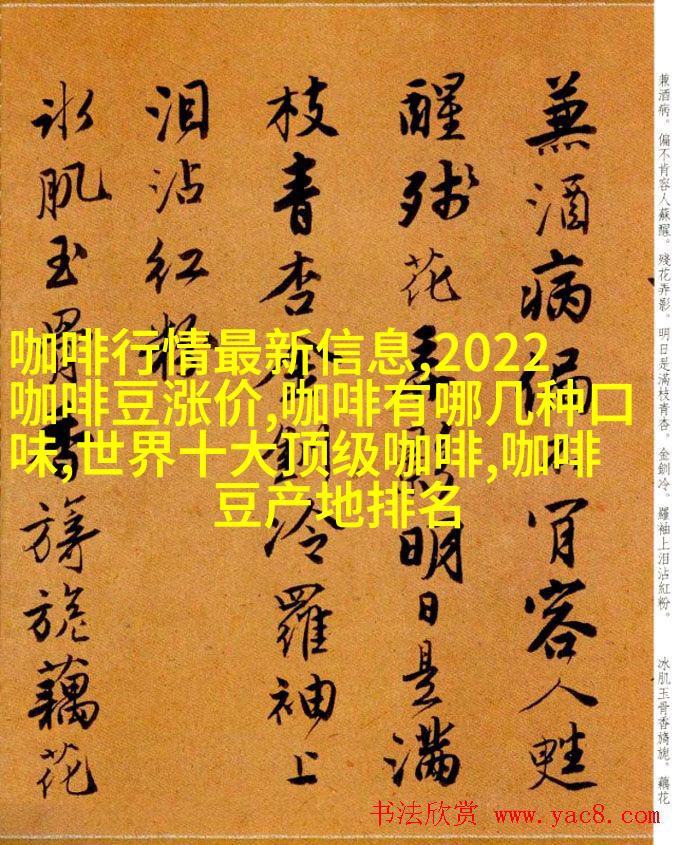 兼酒病偏不肯容人甦
醒殘花弄影明日是滿
枝青杏金釧冷羅袖上
泪沾紅粉
冰肌玉骨香旖旎藕花
咖啡行情最新信息,2022
咖啡豆涨价,咖啡有哪几种口
味,世界十大顶级咖啡,咖啡
豆产地排名
兼酒病。偏不肯容人蘇醒。殘花弄影。明日是滿枝青杏。金釧冷。羅袖上泪沾紅粉。
冰肌玉骨香旖旎。藕花
书法欣赏 www.yac8.com